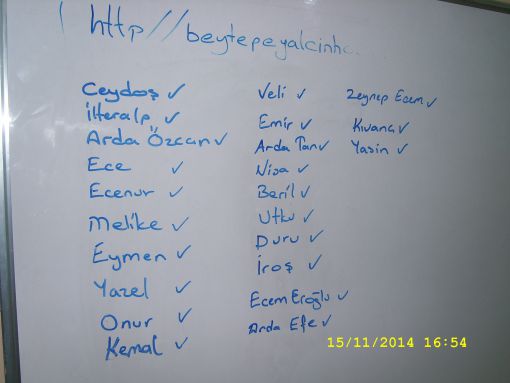 http//beytepeyalcinha
Ceydoş ✓
İlteralp ✓
Arda Özcan ✓
Ece ✓
Ecenur ✓
Melike ✓
Eymen ✓
Yazel ✓
Onur ✓
Kemal ✓
Veli ✓
Emir ✓
Arda Tan ✓
Nisa ✓
Beril ✓
Utku ✓
Duru ✓
İroş ✓
Ecem Eroğlu ✓
Arda Efe ✓
Zeynep Ecem ✓
Kıvanç ✓
Yasin ✓
15/11/2014 16:54